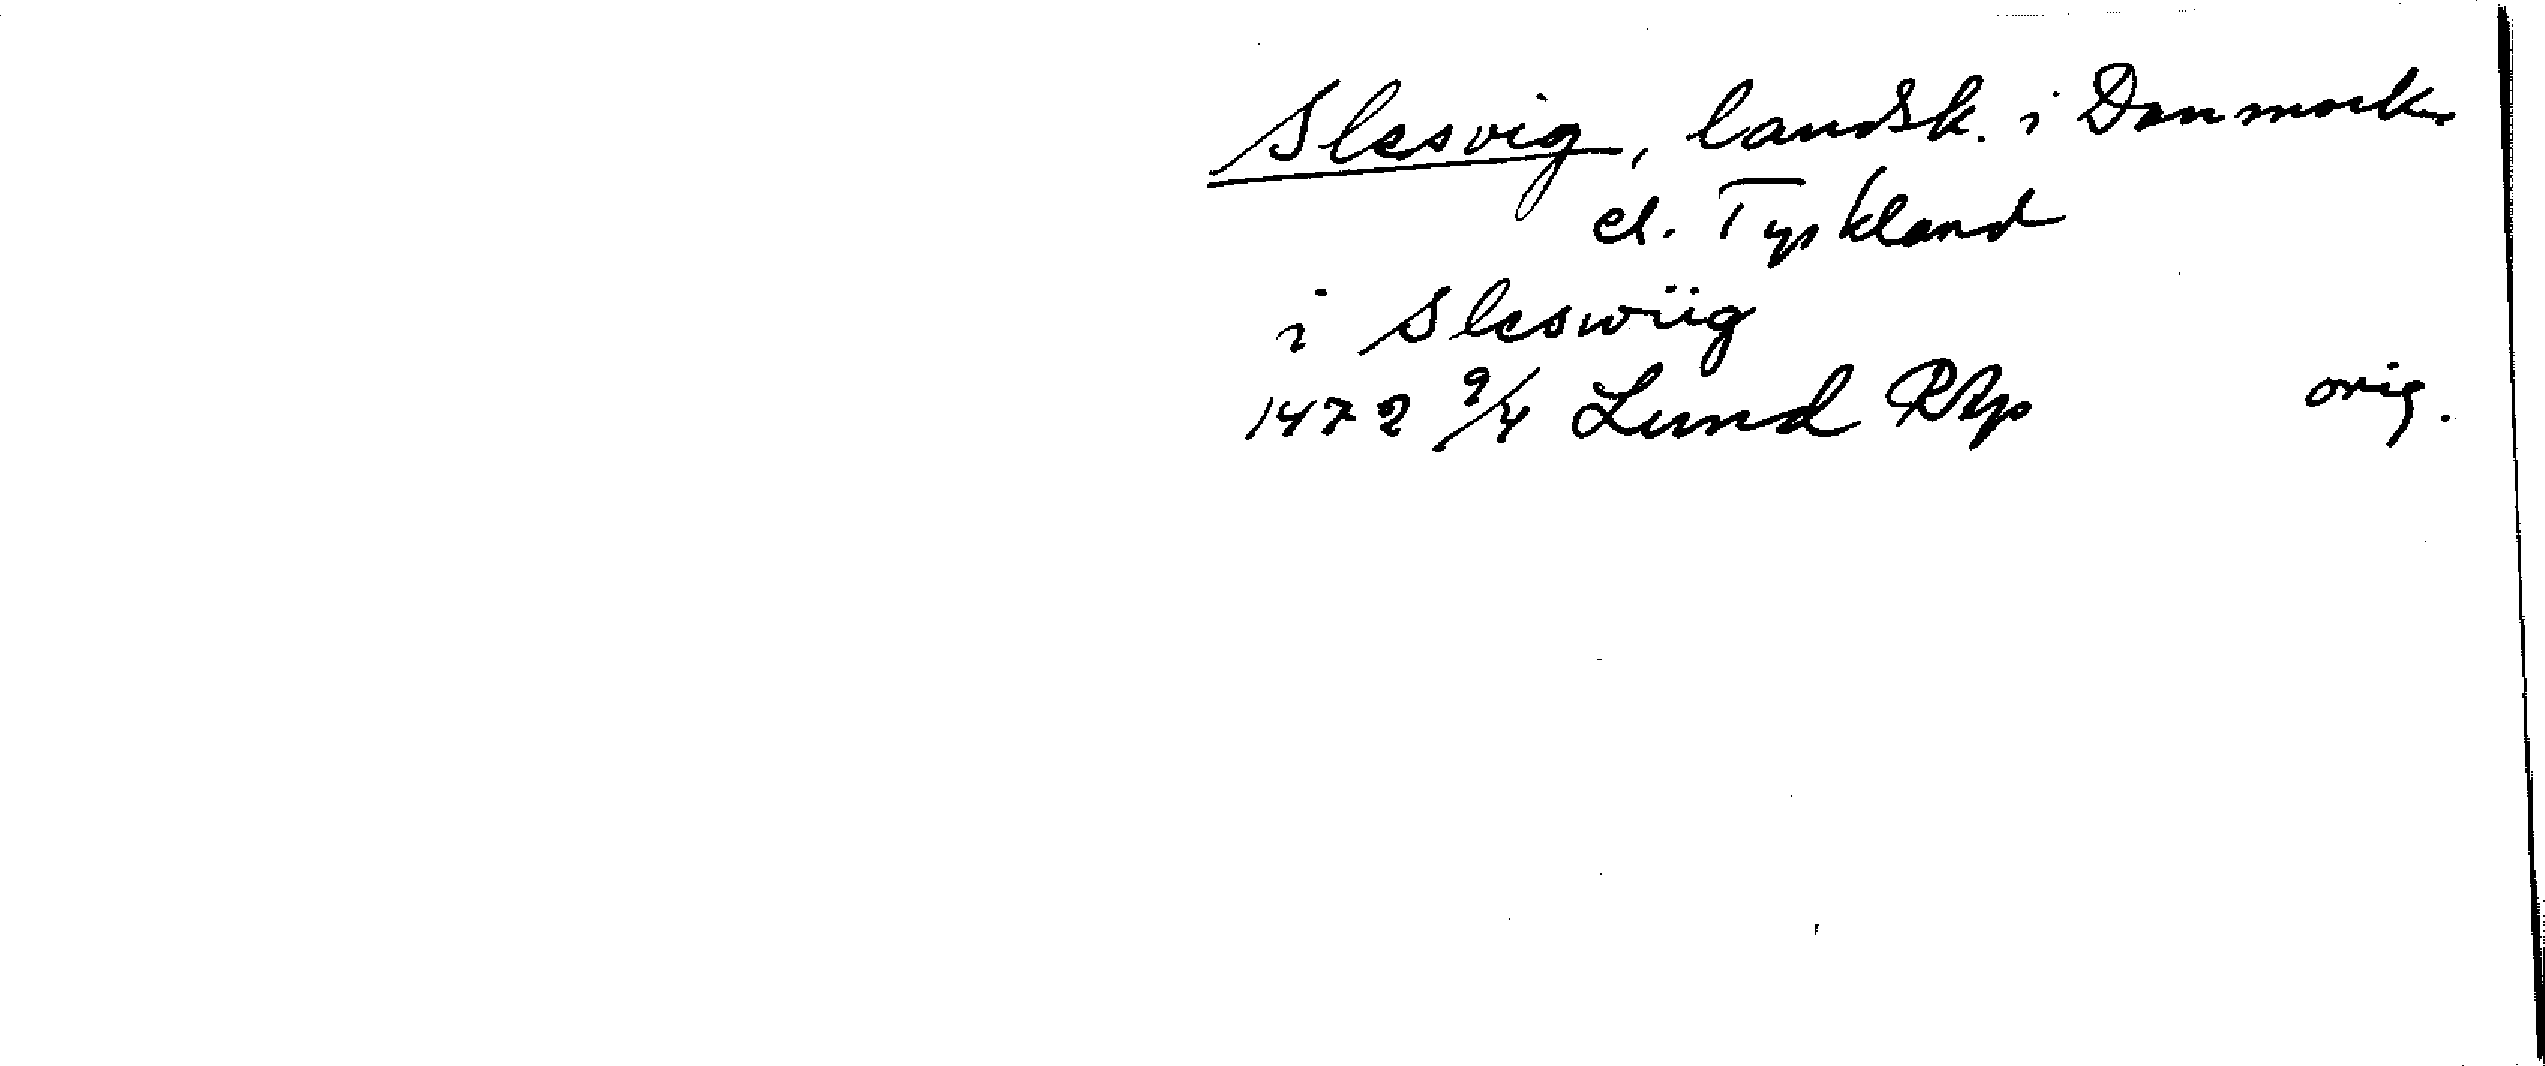 Slesvig, landsk. i Danmark
el. Tyskland
i Sleswiig
1472 9/4 Lund RAp orig.